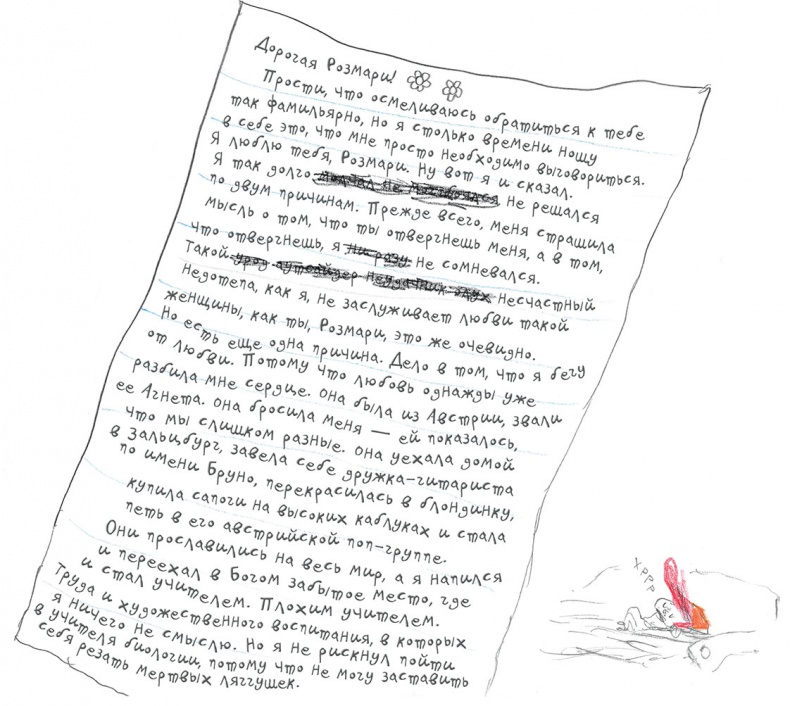 Дорогая Розмари!
Прости, что осмеливаюсь обратиться к тебе
так фамильярно, но я столько времени ношу
в себе это, что мне просто необходимо выговориться.
Я люблю тебя, Розмари. Ну вот я и сказал.
Я так долго не решался
по двум причинам. Прежде всего, меня страшила
мысль о том, что ты отвергнешь меня, а в том,
что отвергнешь, я ни разу не сомневался.
Такой урод аутсайдер неудачник несчастный
недотепа, как я, не заслуживает любви такой
женщины, как ты, Розмари, это же очевидно.
Но есть еще одна причина. Дело в том, что я бегу
от любви. Потому что любовь однажды уже
разбила мне сердце. Она была из Австрии, звали
ее Агнета. Она бросила меня — ей показалось,
что мы слишком разные. Она уехала домой
в Зальцбург, завела себе дружка-гитариста
по имени Бруно, перекрасилась в блондинку,
купила сапоги на высоких каблуках и стала
петь в его австрийской поп-группе.
Они прославились на весь мир, а я напился
и переехал в Богом забытое место, где
и стал учителем. Плохим учителем.
Труда и художественного воспитания, в которых
я ничего не смыслю. Но я не рискнул пойти
в учителя биологии, потому что не могу заставить
себя резать мертвых ляггушек.
ХРРР